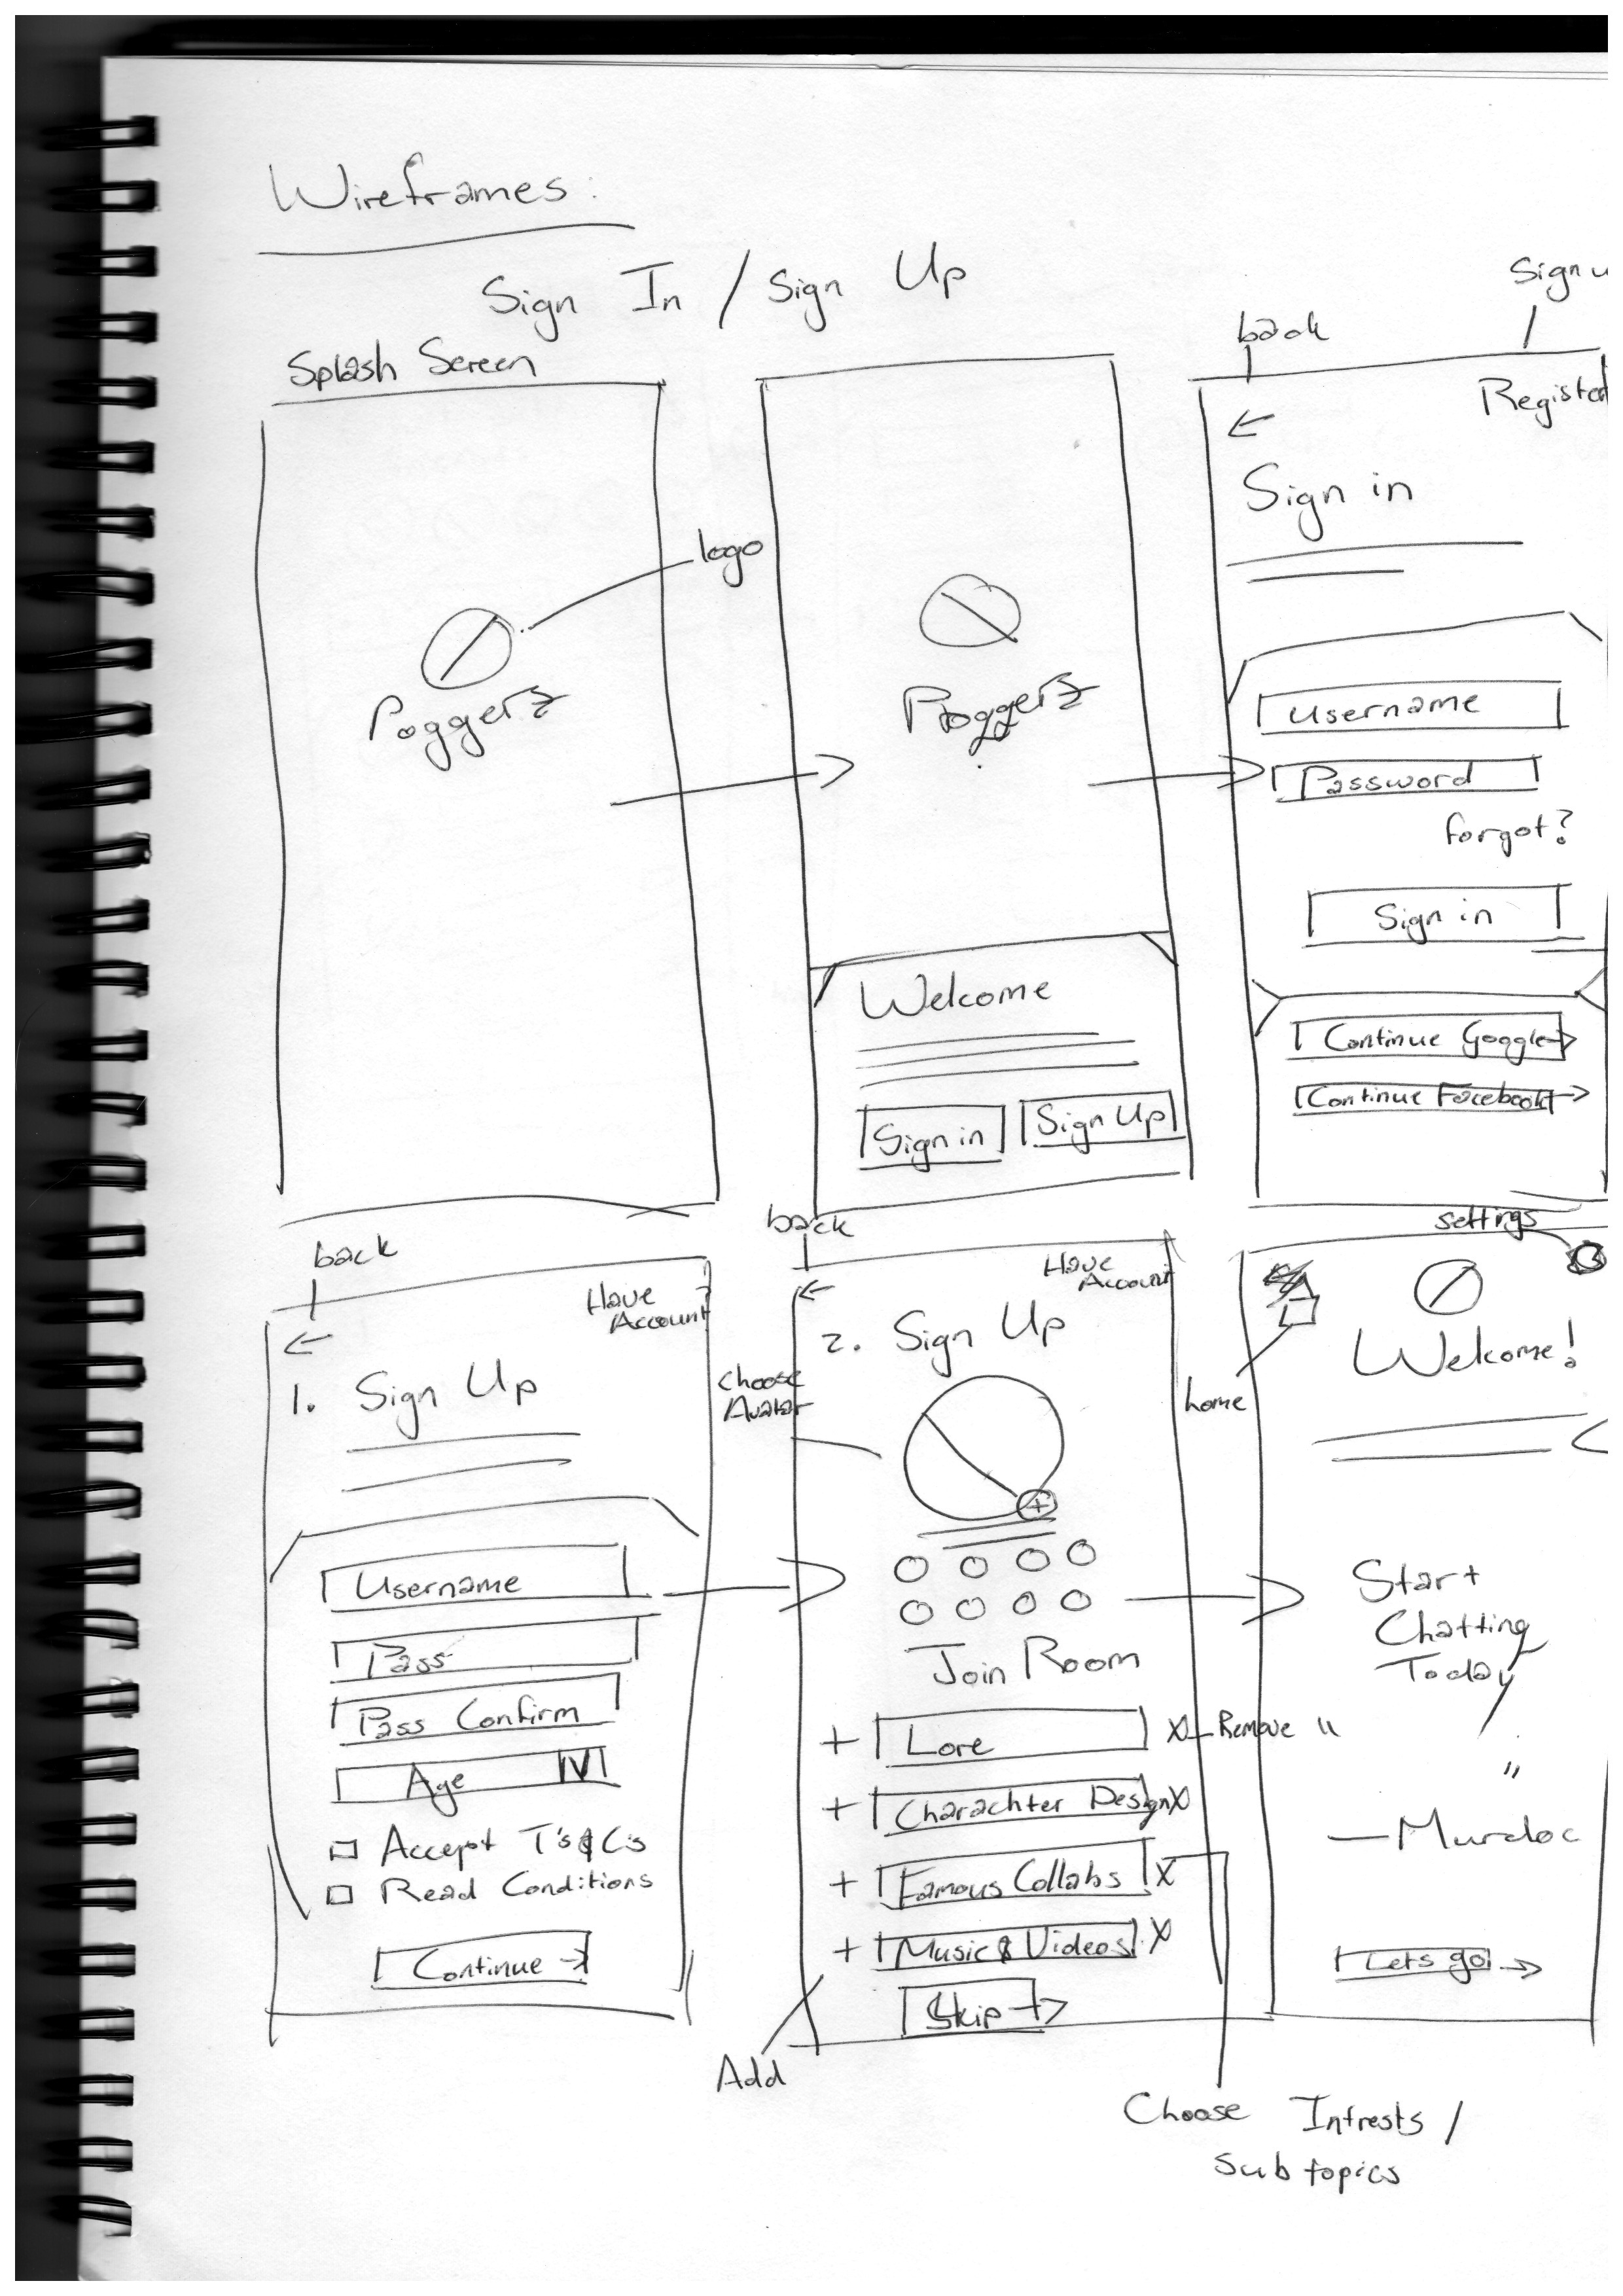 Wireframes:
Sign In / Sign Up
Splash Screen
logo
Poggerz
Poggerz
Welcome
Sign in
Sign Up
back
Sign u
Register
←
Sign in
Username
Password
forgot?
Sign in
Continue Google →
Continue Facebook →
back
Have
Account
←
1. Sign Up
Username
Pass
Pass Confirm
Age
Accept T's & C's
Read Conditions
Continue →
back
Have
Account
←
2. Sign Up
Choose
Avatar
+
Join Room
+ Lore X Remove "
+ Charachter Design X
+ Famous Collabs X
+ Music & Videos X
Skip →
Add
Choose Intrests /
Sub topics
settings
home
Welcome!
Start
Chatting
Today
"
— Murdoc
Lets go! →